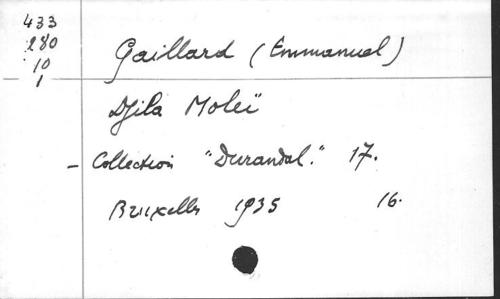 433
280
10
1
Gaillard (Emmanuel)
Djila Moleï
- Collection "Durandal." 17.
Bruxelles 1935 16.